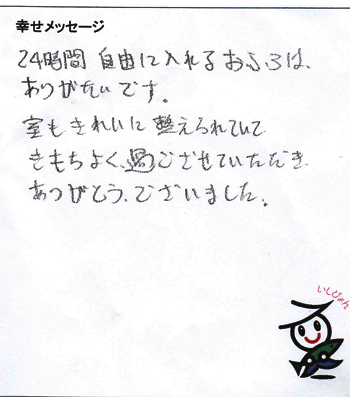 幸せメッセージ
24時間 自由に入れるおふろは、
ありがたいです。
室もきれいに整えられていて
きもちよく、過ごさせていただき
ありがとうございました。
いしぴょん